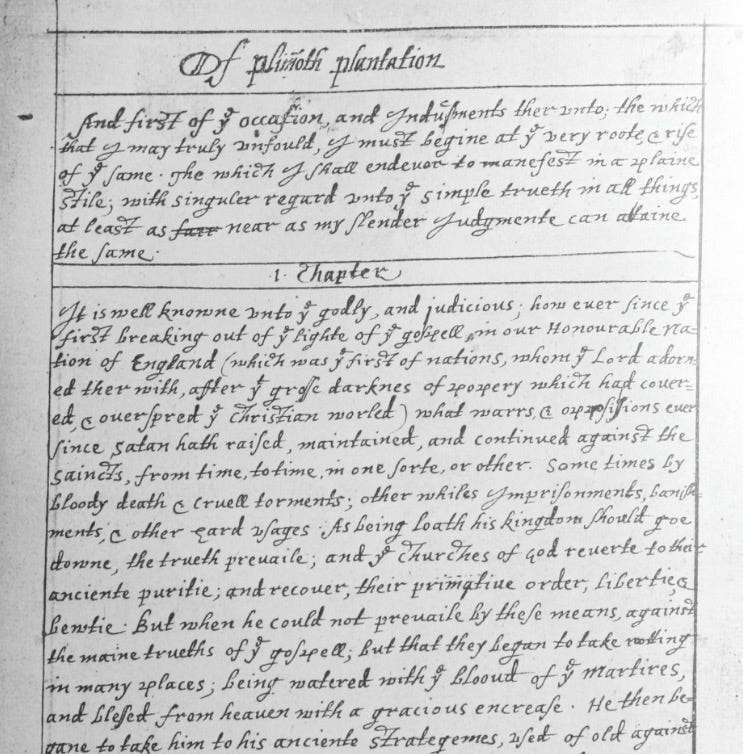 Of plim̃oth plantation
And first of yᵉ occasion, and Indusments ther unto; the which
that I may truly unfould, I must begine at yᵉ very roote, & rise
of yᵉ same. The which I shall endevor to manefest in a plaine
stile; with singuler regard unto yᵉ simple trueth in all things,
at least as farr near as my slender Judgmente can attaine
the same.
1. Chapter
It is well knowne unto yᵉ godly, and judicious; how ever since yᵉ
first breaking out of yᵉ lighte of yᵉ gospell, in our Honourable Na-
tion of England (which was yᵉ first of nations, whom yᵉ Lord adorn-
ed ther with, after yᵉ grosse darknes of popery which had cover-
ed, & overspred yᵉ christian worled) what warrs, & oppossissions ever
since satan hath raised, maintained, and continued against the
saincts, from time, to time, in one sorte, or other. Some times by
bloody death & cruell torments; other whiles Imprisonments, banish-
ments, & other hard usages. As being loath his kingdom should goe
downe, the trueth prevaile; and yᵉ Churches of God reverte to their
anciente puritie; and recover, their primative order, libertie, &
bewtie. But when he could not prevaile by these means, against
the maine trueths of yᵉ gospell; but that they began to take rotting
in many places; being watered with yᵉ bloud of yᵉ martires,
and blessed from heaven with a gracious encrease. He then be-
gane to take him to his anciente strategemes, used of old against